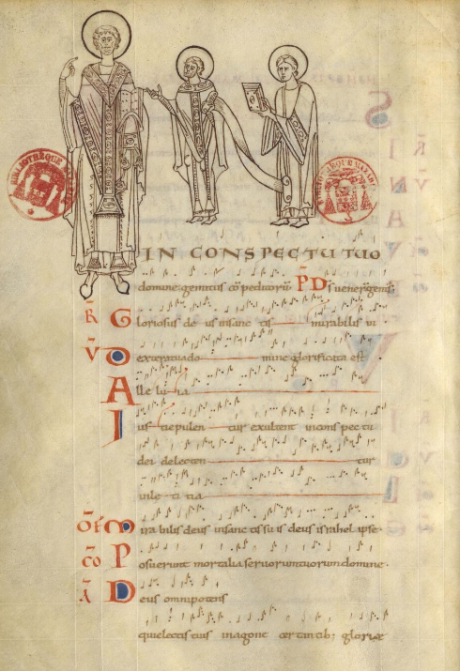 BIBLIOTHEQUE
IN CONSPECTU TUO
domine gemitus cōpeditorū P̄ D̄s
R̄ Gloriosus deus insanctis mirabilis in
V̄ Dexteratuado mine glorificata est
Alleluia
Iusti epulen tur exultent inconspectu
dei delecten tur
inle ti tia
OF̄ Mirabilis deus insanctissuis deus israhel ipse
CŌ Posuerunt mortalia seruorumtuorum domine
Ā Deus omnipotens
gloriae